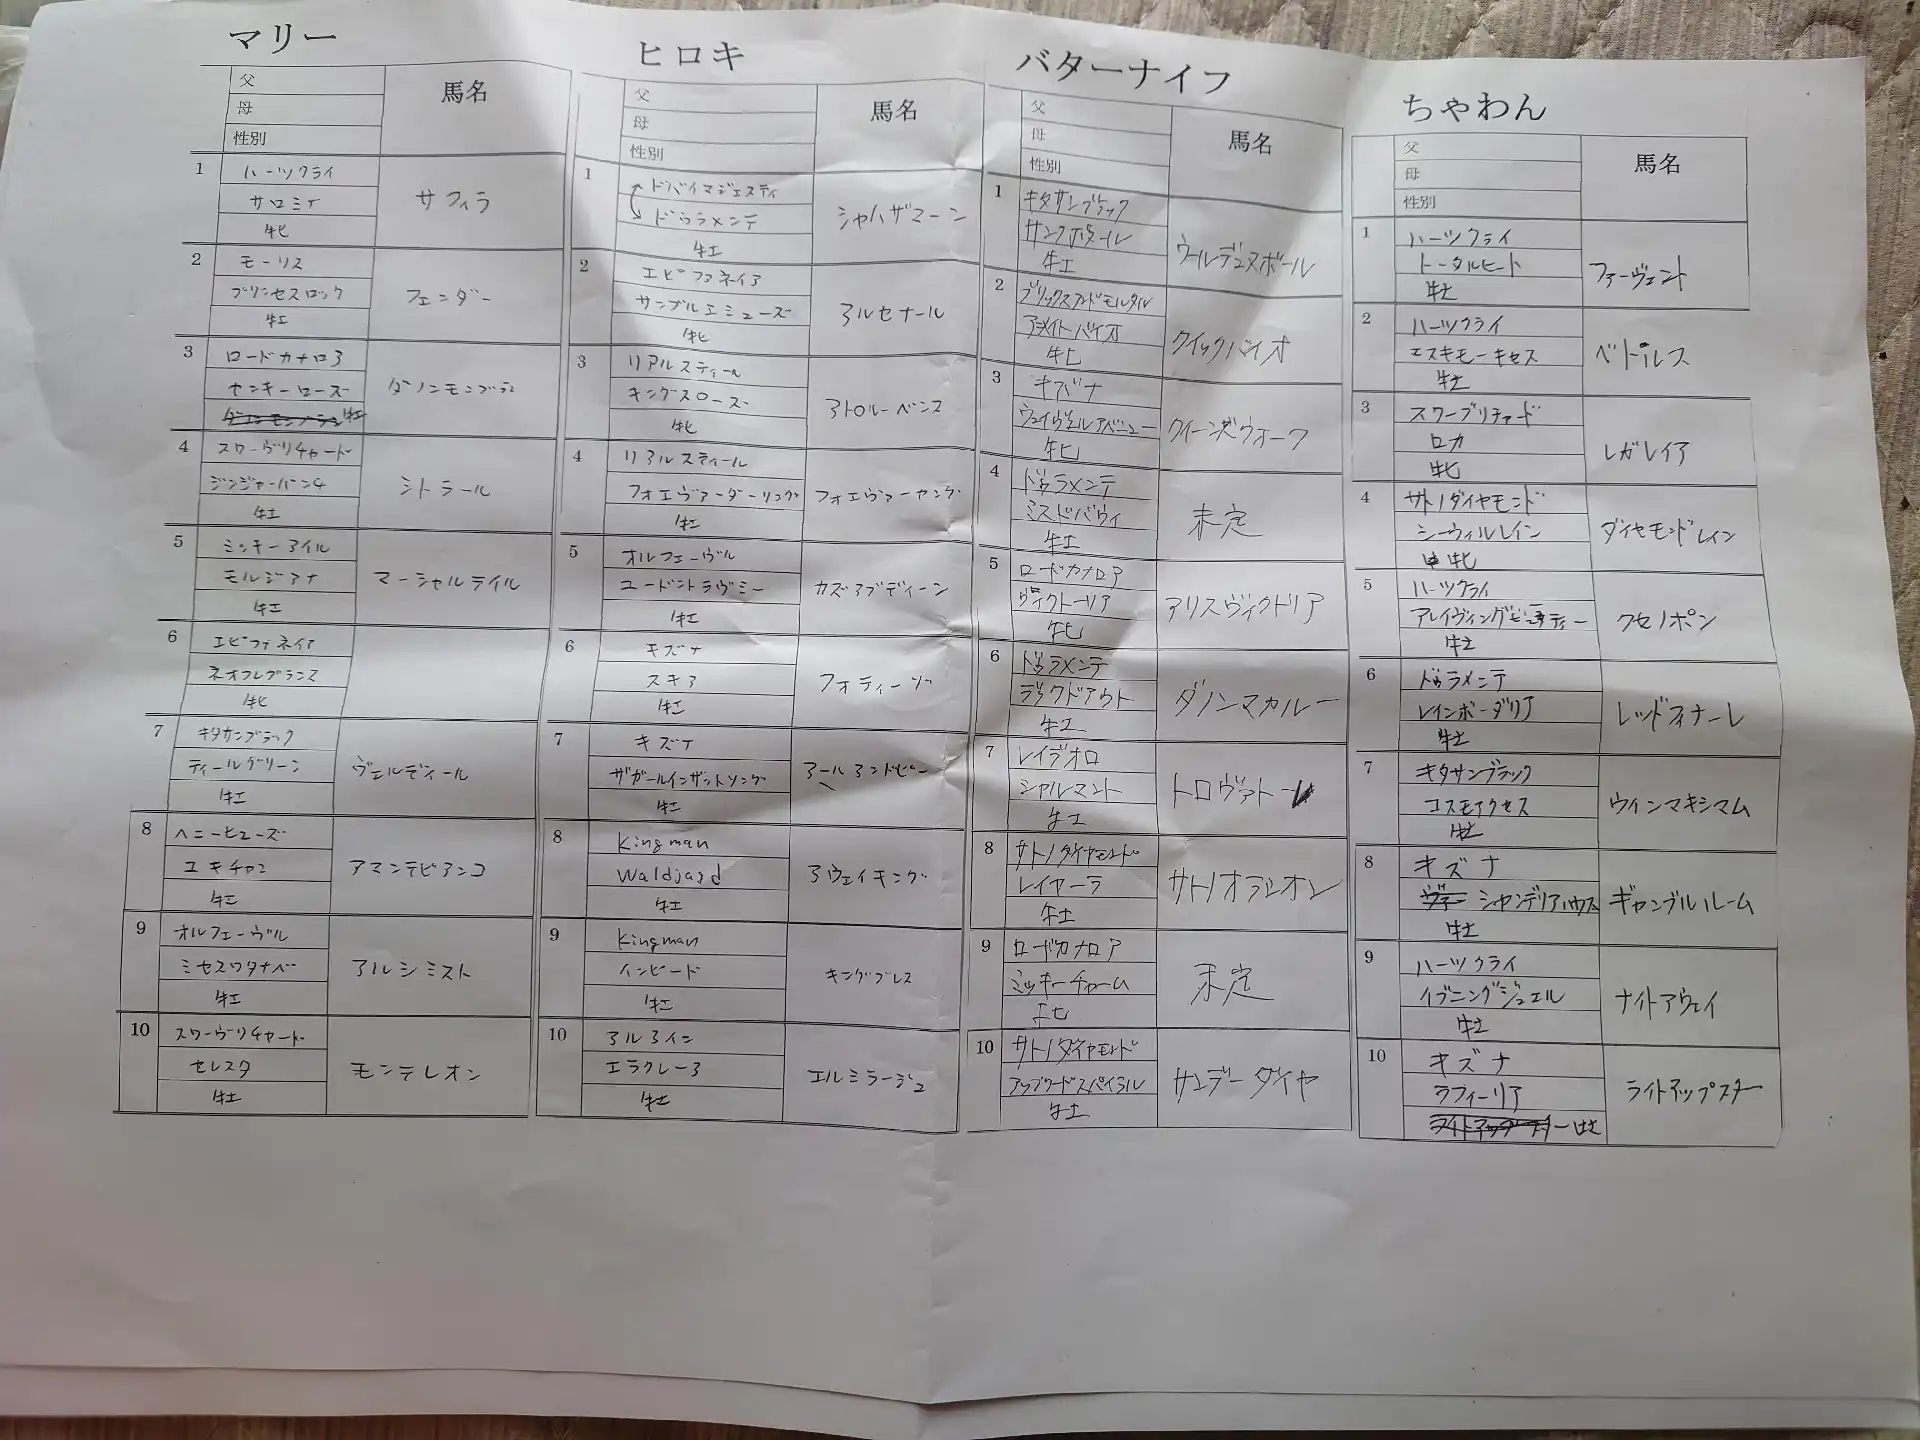 マリー
父
母
性別
馬名
1
ハーツクライ
サロミナ
牝
サフィラ
2
モーリス
プリンセスロック
牡
フェンダー
3
ロードカナロア
センキーローズ
牡
ダノンモンブラン
4
スワーヴリチャード
ジンジャーパンチ
牡
シトラール
5
ミッキーアイル
モルジアナ
牡
マーシャルテイル
6
エピファネイア
ネオフレグランス
牝
7
キタサンブラック
ティールグリーン
牡
ヴェルディール
8
ヘニーヒューズ
ユキチャン
牡
アマンテビアンコ
9
オルフェーヴル
ミセスワタナベ
牡
アルシミスト
10
スワーヴリチャード
セレスタ
牡
モンテレオン
ヒロキ
父
母
性別
馬名
1
ドバイマジェスティ
ドゥラメンテ
牡
シャハザマーン
2
エピファネイア
サンブルエミューズ
牝
アルセナール
3
リアルスティール
キングスローズ
牝
アトロルーベンス
4
リアルスティール
フォエヴァーダーリング
牡
フォエヴァーヤング
5
オルフェーヴル
ユードントラヴミー
牡
カズアブディーン
6
キズナ
スキア
牡
フォティーゾ
7
キズナ
ザガールインザットソング
牡
アールアンドビー
8
Kingman
Waldjagd
牡
アウェイキング
9
Kingman
インビード
牡
キングブレス
10
アルアイン
エラクレーア
牡
エルミラージュ
バターナイフ
父
母
性別
馬名
1
キタサンブラック
サンクボヌール
牡
ウールデュヌボール
2
ブリックスアンドモルタル
アーメイトバイオ
牝
クイックバイオ
3
キズナ
ウェイヴェルアベニュー
牝
クイーンズウォーク
4
ドゥラメンテ
ミスドバウィ
牡
未定
5
ロードカナロア
ヴィクトーリア
牝
アリスヴィクトリア
6
ドゥラメンテ
デックドアウト
牡
ダノンマカルー
7
レイデオロ
シャルマント
牡
トロヴァトーレ
8
サトノダイヤモンド
レイヤーラ
牡
サトノオラシオン
9
ロードカナロア
ミッキーチャーム
牝
未定
10
サトノダイヤモンド
アップワードスパイラル
牡
サンデーダイヤ
ちゃわん
父
母
性別
馬名
1
ハーツクライ
トータルヒート
牡
ファーヴェント
2
ハーツクライ
エスキモーキセス
牡
ベトルス
3
スワーブリチャード
ロカ
牝
レガレイア
4
サトノダイヤモンド
シーウィルレイン
牝
ダイヤモンドレイン
5
ハーツクライ
アレイヴィングビューティー
牡
クセノポン
6
ドゥラメンテ
レインボーダリア
牡
レッドフィナーレ
7
キタサンブラック
コスモアクセス
牡
ウインマキシマム
8
キズナ
シャンデリアハウス
牡
ギャンブルルーム
9
ハーツクライ
イブニングジュエル
牡
ナイトアウェイ
10
キズナ
ラフィーリア
牡
ライトアップスター